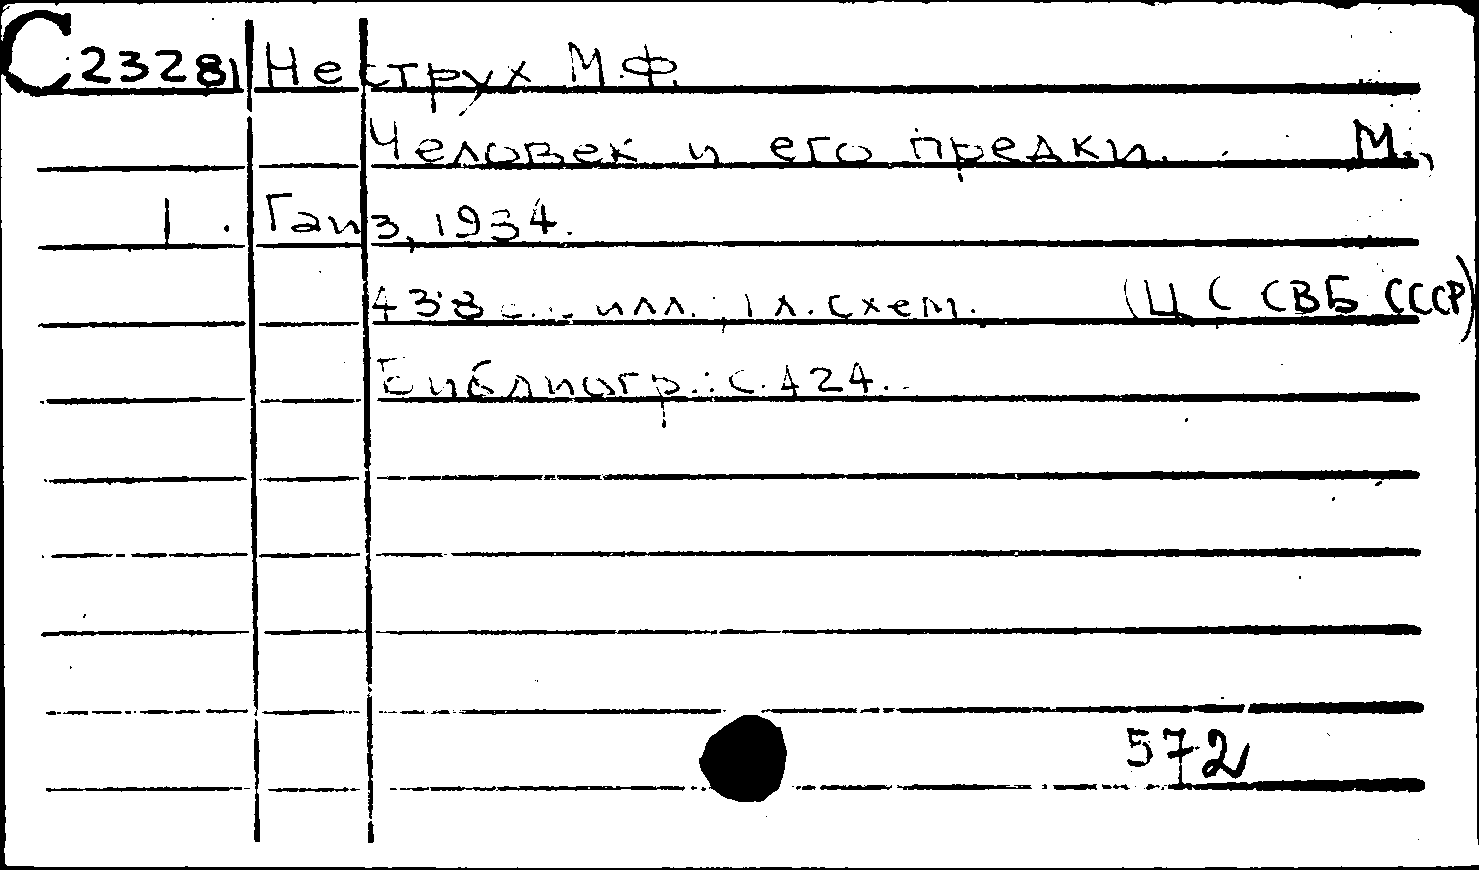 С 23281 Неструх М.Ф.
Человек и его предки. М.,
1. Гаиз, 1934.
438 с.: илл.; 1 л. схем. (ЦС СВБ СССР)
Библиогр.: с. 424.
572